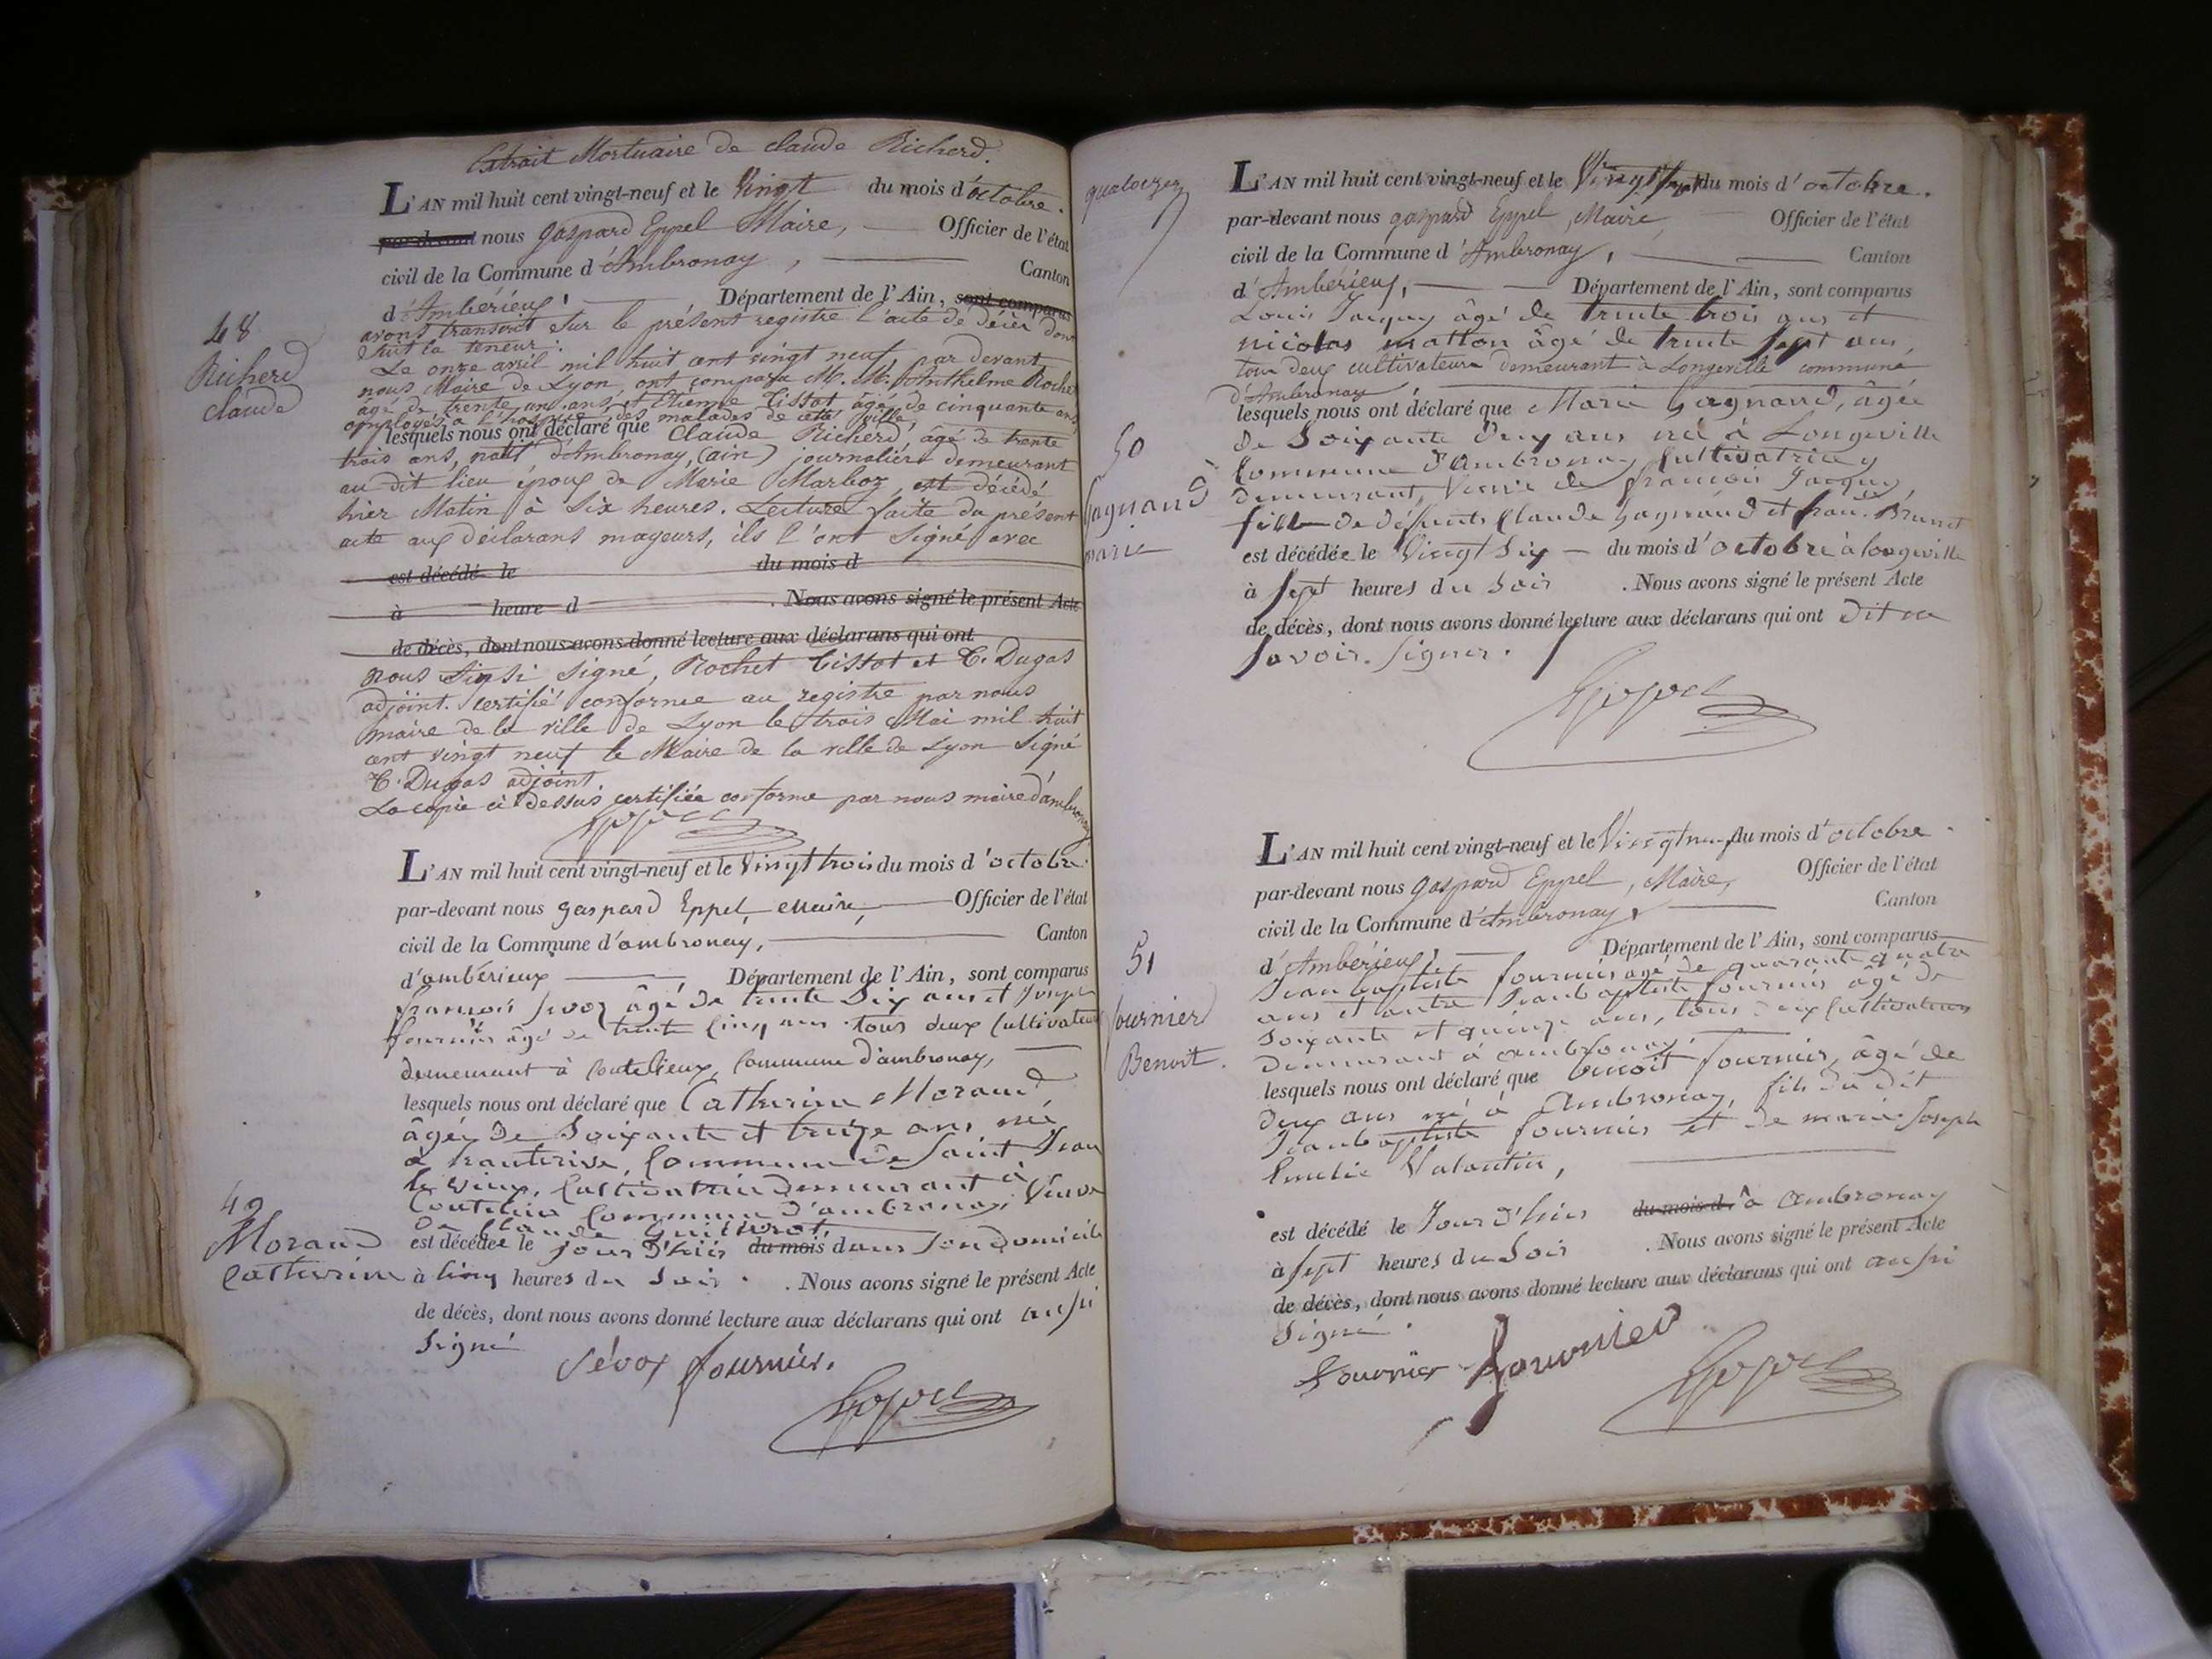 Extrait Mortuaire de claude Richerd.
L'AN mil huit cent vingt-neuf et le Vingt du mois d'octobre.
par-devant nous gaspard Eppel Maire, Officier de l'état
civil de la Commune d'Ambronay, Canton
d'Ambérieux, Département de l'Ain, sont comparus
avons transcrit sur le présent registre l'acte de décès dont
suit la teneur:
Le onze avril mil huit cent vingt neuf, par devant
nous Maire de Lyon, ont comparu M. M. Anthelme Rochet
âgé de trente un ans, et Etienne Tissot, âgé de cinquante ans
employés à l'hospice des malades de cette ville,
lesquels nous ont déclaré que Claude Richerd, âgé de trente
trois ans, natif d'Ambronay, (ain) journalier demeurant
au dit lieu époux de Marie Marboz, est décédé
hier Matin à Six heures. Lecture faite du présent
acte aux declarans mayeurs, ils l'ont Signé avec
est décédé le du mois d
à heure d . Nous avons signé le présent Acte
de décès, dont nous avons donné lecture aux déclarans qui ont
nous Signé, Rochet Tissot et C. Dugas
adjoint. Certifié conforme au registre par nous
maire de la ville de Lyon le trois Mai mil huit
cent vingt neuf le Maire de la ville de Lyon Signé
C. Dugas adjoint.
La copie ci dessus certifiée conforme par nous maire d'ambronay
48
Richerd
claude
L'AN mil huit cent vingt-neuf et le Vingt trois du mois d'octobre
par-devant nous gaspard Eppel, Maire, Officier de l'état
civil de la Commune d'ambronay, Canton
d'ambérieux Département de l'Ain, sont comparus
françois Sevoz âgé de trente Six ans et Joseph
fournier âgé de trente Cinq ans tous deux Cultivateurs
demeurant à Coutelieux, Commune d'ambronay,
lesquels nous ont déclaré que Catherine Morand
âgée de Soixante et treize ans née
à hauterive, Commune de Saint Jean
le vieux, Cultivatrice demeurant à
Coutelieu Commune d'ambronay, Veuve
de Claude
est décédée le jour d'hier du mois dans Son domicile
à Cinq heures du Soir. . Nous avons signé le présent Acte
de décès, dont nous avons donné lecture aux déclarans qui ont aussi
Signé
Sévoz fournier.
Eppel
49
Morand
Catherine
quatorze
L'AN mil huit cent vingt-neuf et le Vingt Sept du mois d'octobre.
par-devant nous gaspard Eppel, Maire, Officier de l'état
civil de la Commune d'Ambronay, Canton
d'Ambérieux, Département de l'Ain, sont comparus
Louis Jacquy âgé de trente trois ans et
nicolas matton âgé de trente Sept ans,
tous deux cultivateurs demeurant à Longeville commune
d'Ambronay
lesquels nous ont déclaré que Marie Gagnand, âgée
de Soixante deux ans née à Longeville
Commune d'Ambronay, Cultivatrice y
demeurant, Veuve de françois Jacquy
fille de défunts Claude Gagnand et fran. Brunet
est décédée le Vingt Six du mois d'octobre à longeville
à Sept heures du Soir . Nous avons signé le présent Acte
de décès, dont nous avons donné lecture aux déclarans qui ont Dit ne
Savoir Signer.
Eppel
50
Gagnand
marie
L'AN mil huit cent vingt-neuf et le Vingt neuf du mois d'octobre
par-devant nous gaspard Eppel, Maire, Officier de l'état
civil de la Commune d'Ambronay, Canton
d'Ambérieux, Département de l'Ain, sont comparus
Jean baptiste fournier agé de quarante quatre
ans et autre Jean baptiste fournier âgé de
Soixante et quinze ans, tous deux Cultivateurs
demeurant à ambronay,
lesquels nous ont déclaré que benoit fournier, âgé de
deux ans né à Ambronay, fils du dit
Jean baptiste fournier et de marie Joseph
Emelie Valantin,
est décédé le Jour d'hier du mois d. à ambronay
à Sept heures du Soir . Nous avons signé le présent Acte
de décès, dont nous avons donné lecture aux déclarans qui ont aussi
Signé.
fournier fournier
Eppel
51
fournier
Benoit.